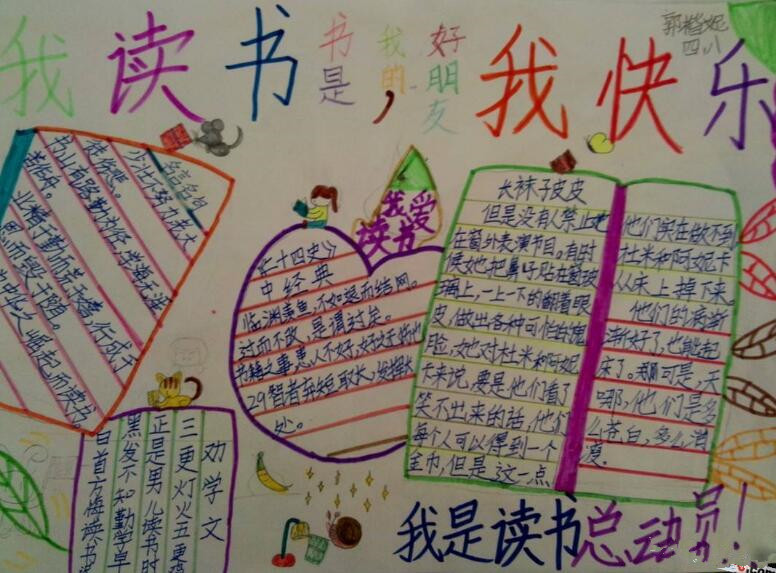 我读书
书是
我的,
好朋友
我快乐
郭楷妮
四八
名言名句
少壮不努力,老大
徒伤悲。
书山有路勤为径,学海无涯
苦作舟。
业精于勤而荒于嬉,行成于
思而毁于随。
崛起而读书。
我爱
读书
《二十四史》
中经典
临渊羡鱼,不如退而结网。
过而不改,是谓过矣。
智者弃短取长,
长袜子皮皮
但是没有人禁止她
在窗外表演节目。有时
候她把鼻子贴在窗玻
璃上,一上一下的翻着眼
皮,做出各种可怕的鬼
脸,她也对杜米和阿妮
卡来说,要是他们看了
笑不出来的话,他们
每个人可以得到一个
金币,但是这一点
他们实在做不到
杜米和阿妮卡
从床上掉下来。
他们的病渐
渐好了,也能起
床了。啊可是,天
哪,他们是多
么苍白,多么消
瘦。
劝学文
三更灯火五更鸡
正是男儿读书时
黑发不知勤学早
白首方悔读书迟
我是读书总动员!